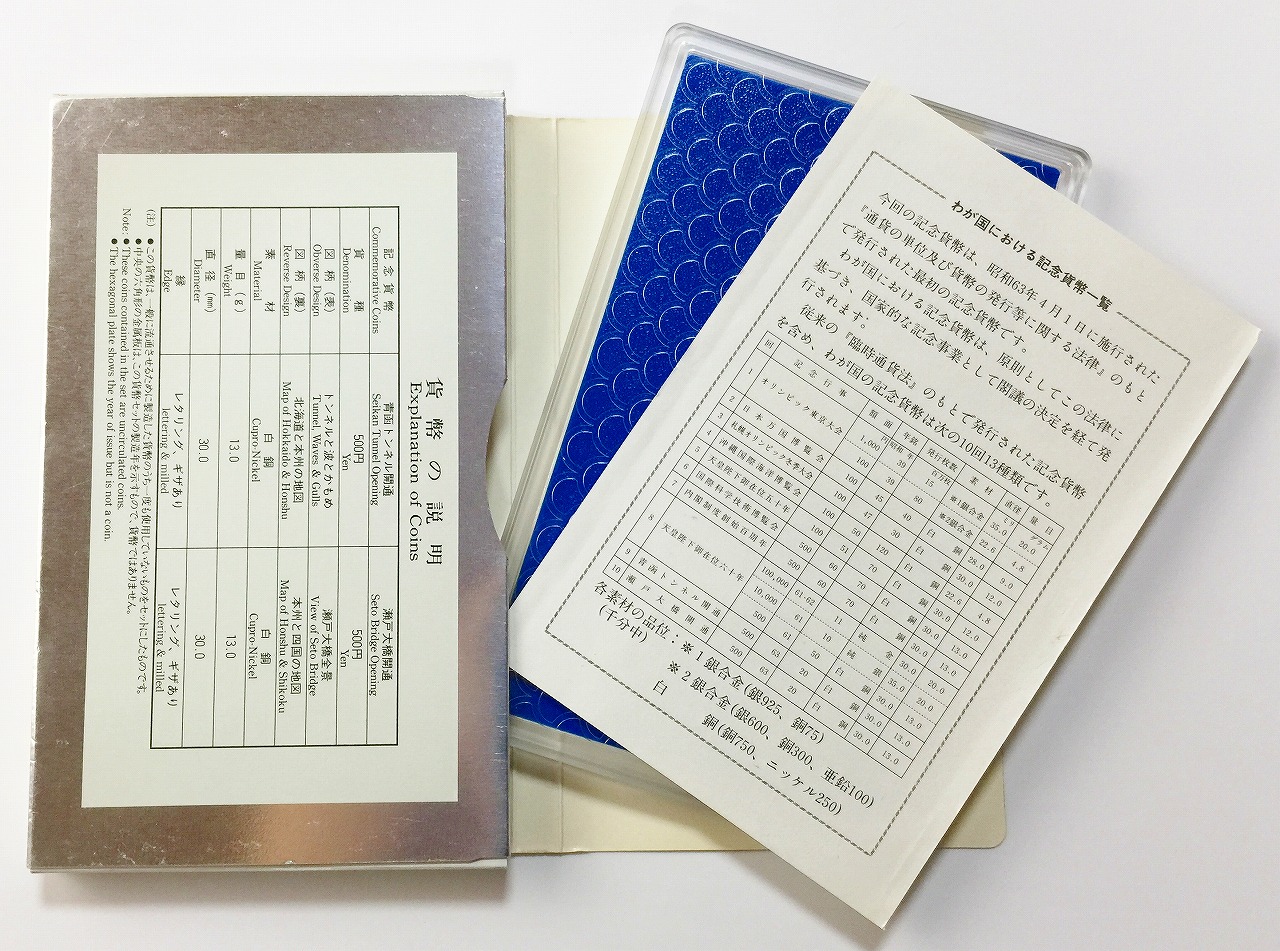 貨幣の説明
Explanation of Coins
記念貨幣 青函トンネル開通 瀬戸大橋開通
Commemorative Coins Seikan Tunnel Opening Seto Bridge Opening
貨種 500円 500円
Denomination Yen Yen
図柄(表) トンネルと波とかもめ 瀬戸大橋全景
Obverse Design Tunnel, Waves & Gulls View of Seto Bridge
図柄(裏) 北海道と本州の地図 本州と四国の地図
Reverse Design Map of Hokkaido & Honshu Map of Honshu & Shikoku
素材 白銅 白銅
Material Cupro-Nickel Cupro-Nickel
量目(g) 13.0 13.0
Weight
直径(mm) 30.0 30.0
Diameter
縁 レタリング、ギザあり レタリング、ギザあり
Edge lettering & milled lettering & milled
(注) ●この貨幣は、一般に流通させるために製造した貨幣のうち一度も使用していないものをセットにしたものです。
●中央の六角形の金属板は、この貨幣セットの製造年を示すもので、貨幣ではありません。
Note: ●These coins contained in the set are uncirculated coins.
●The hexagonal plate shows the year of issue but is not a coin.
わが国における記念貨幣一覧
今回の記念貨幣は、昭和63年4月1日に施行された
『通貨の単位及び貨幣の発行等に関する法律』のもと
で発行された最初の記念貨幣です。
わが国における記念貨幣は、原則としてこの法律に
基づき、国家的な記念事業として閣議の決定を経て発
行されます。
従来の『臨時通貨法』のもとで発行された記念貨幣
を含め、わが国の記念貨幣は次の10回13種類です。
回 記念行事 額面 年銘 発行枚数 素材 直径 量目
円 昭和・年 百万枚 ミリ グラム
1 オリンピック東京大会 1,000 39 15 ※1銀合金 35.0 20.0
100 39 80 ※2銀合金 22.6 4.8
2 日本万国博覧会 100 45 40 白銅 28.0 9.0
3 札幌オリンピック冬季大会 100 47 30 白銅 30.0 12.0
4 沖縄国際海洋博覧会 100 50 120 白銅 22.6 4.8
5 天皇陛下御在位五十年 100 51 70 白銅 30.0 12.0
6 国際科学技術博覧会 500 60 70 白銅 30.0 13.0
7 内閣制度創始百周年 500 60 70 白銅 30.0 13.0
8 天皇陛下御在位六十年 100,000 61・62 11 純金 30.0 20.0
10,000 61 10 純銀 35.0 20.0
500 61 50 白銅 30.0 13.0
9 青函トンネル開通 500 63 20 白銅 30.0 13.0
10 瀬戸大橋開通 500 63 20 白銅 30.0 13.0
各素材の品位:※1銀合金(銀925、銅75)
(千分中) ※2銀合金(銀600、銅300、亜鉛100)
白銅(銅750、ニッケル250)